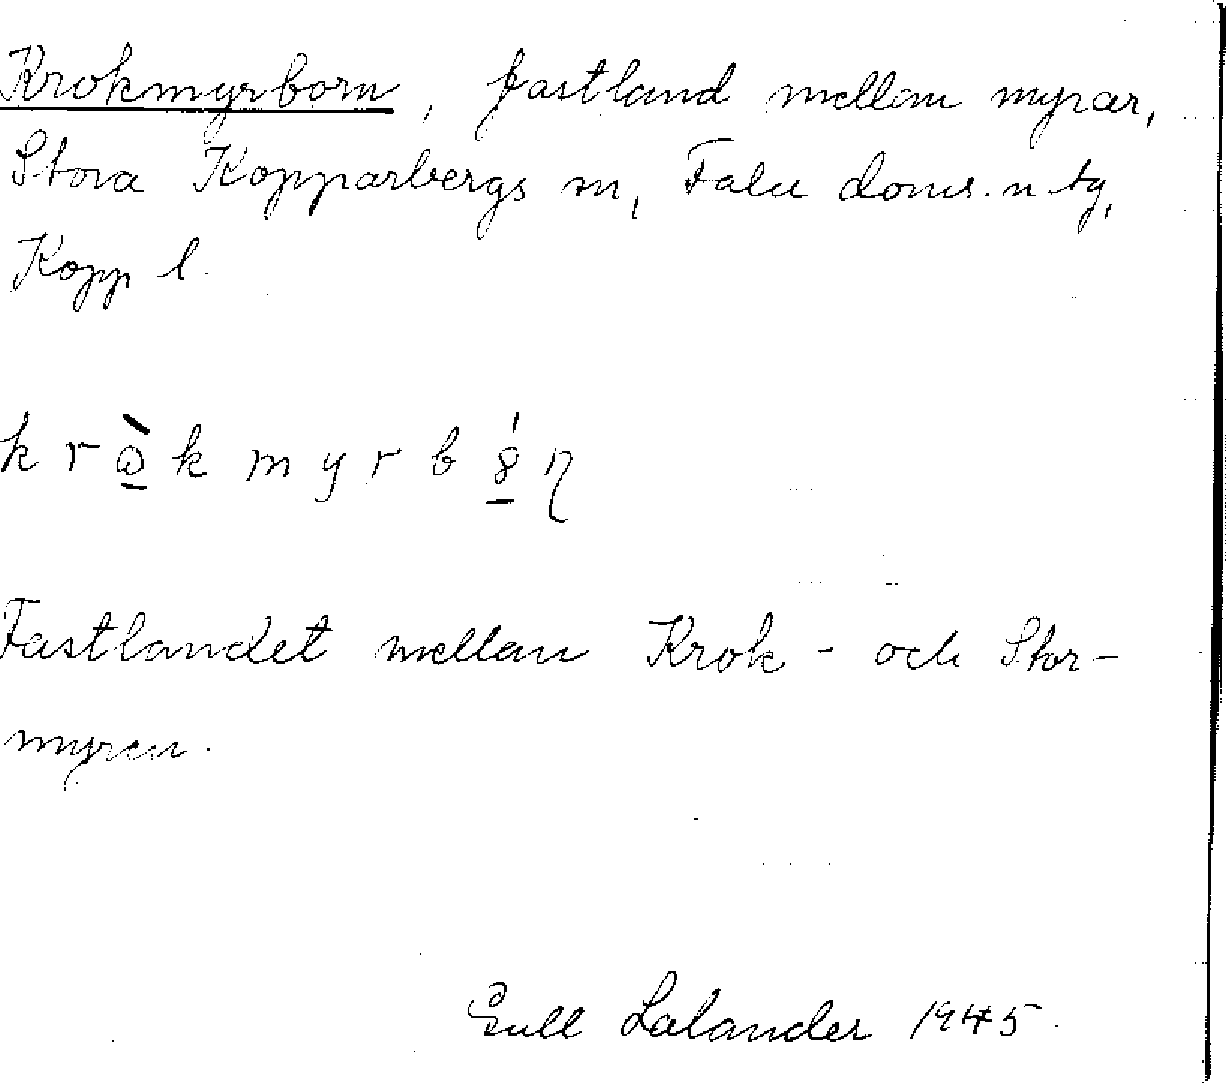 Krokmyrborn, fastland mellan myrar,
Stora Kopparbergs sn, Falu doms. n tg,
Kopp l.
k r k m y r b
Fastlandet mellan Krok- och Stor-
myren.
Gull Lalander 1945.